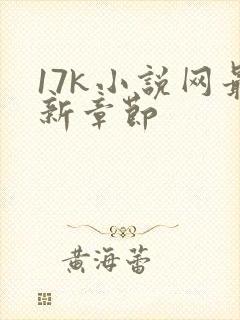 17K小说网最
新章节
黄海蕾